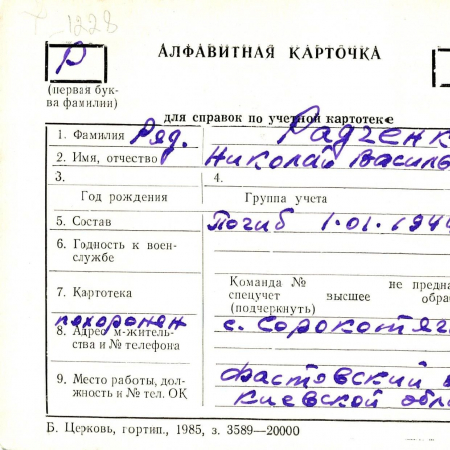 Т-1228
Р
АЛФАВИТНАЯ КАРТОЧКА
(первая бук-
ва фамилии)
для справок по учетной картотеке
1. Фамилия Ряд. Радченк
2. Имя, отчество Николай Василь
3. 4.
Год рождения Группа учета
5. Состав Погиб 1.01.1944
6. Годность к воен-
службе
Команда № не предна
7. Картотека спецучет высшее обра
(подчеркнуть)
похоронен с. Сорокотяг
8. Адрес м-житель-
ства и № телефона
9. Место работы, дол- Фастовский
жность и № тел. ОК Киевской обл
Б. Церковь, гортип., 1985, з. 3589—20000